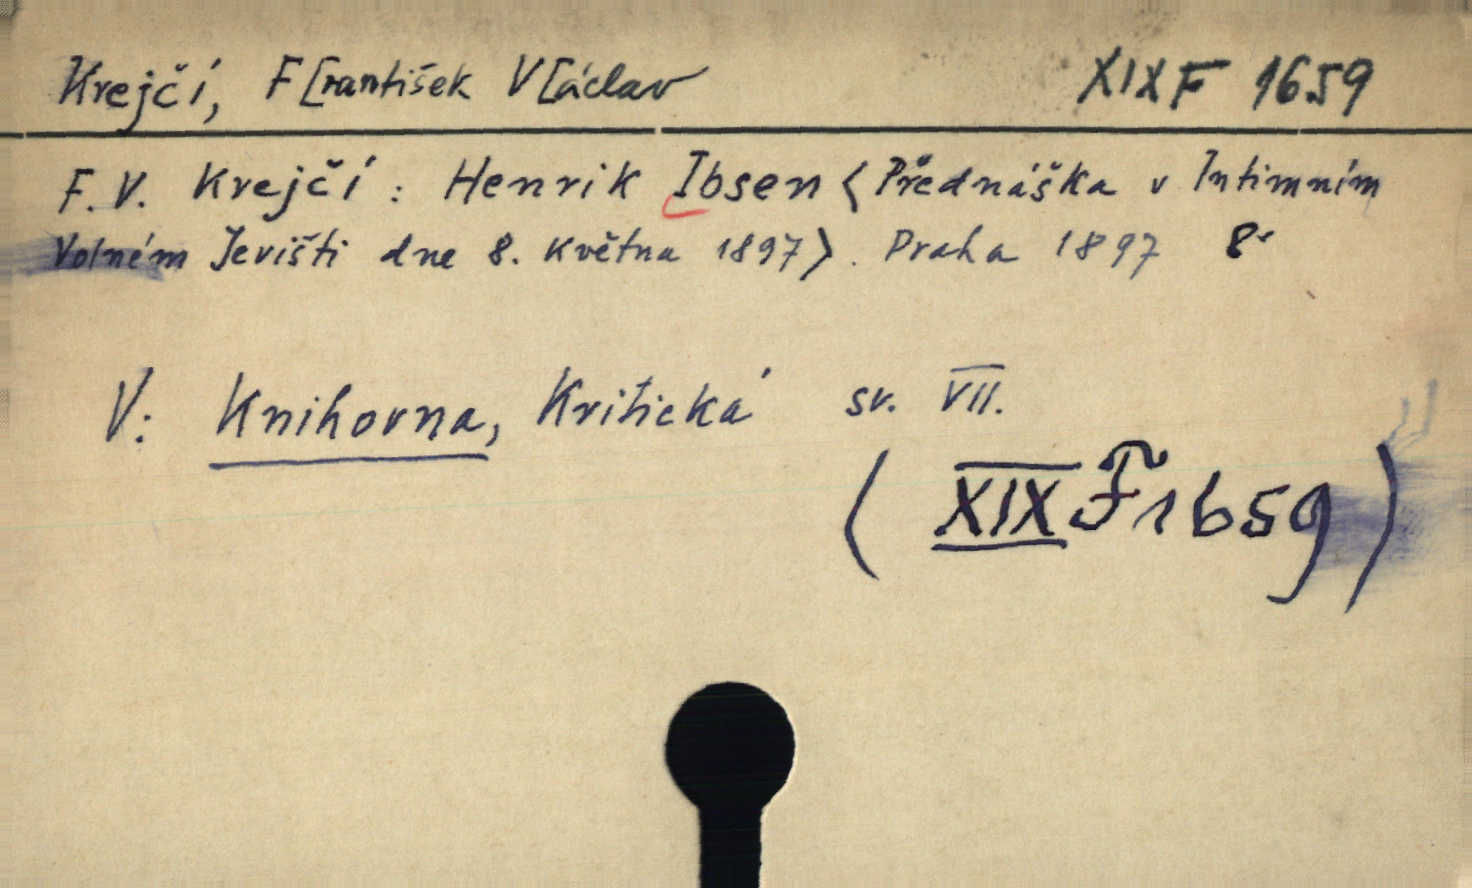 Krejčí, F[rantišek V[áclav XIX F 1659
F. V. Krejčí: Henrik Ibsen (Přednáška v Intimním
Volném Jevišti dne 8. května 1897). Praha 1897 8°
V: Knihovna, Kritická sv. VII.
(XIX F 1659)